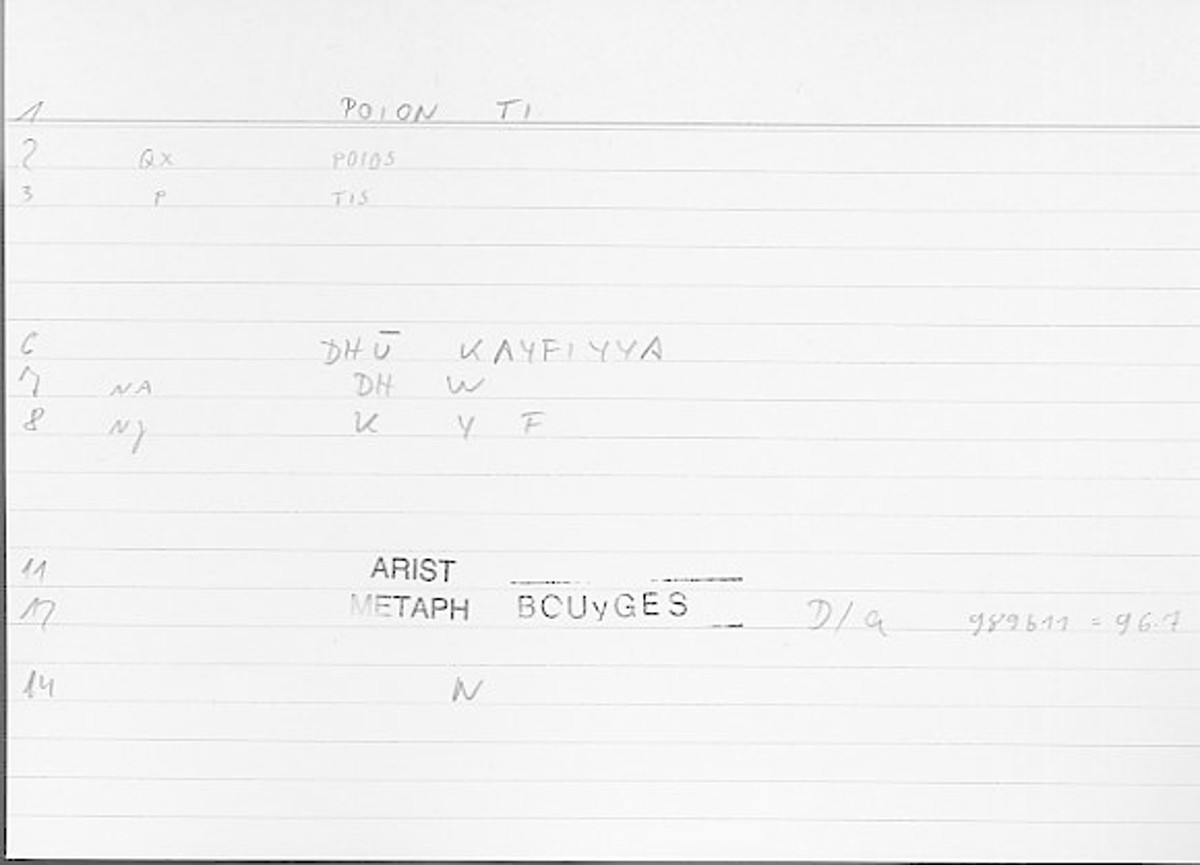 1 POION TI
2 QX POIOS
3 P TIS
6 DHŪ KAYFIYYA
7 NA DH W
8 Nj K Y F
11 ARIST
12 METAPH BOUyGES D/a 989b11 = 96.7
14 N